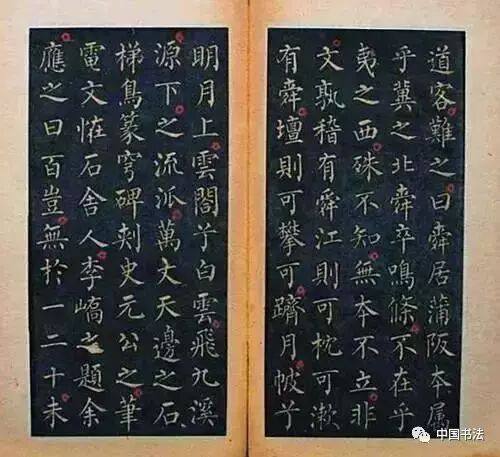 道客難之曰舜居蒲阪本属
乎冀之北舜卒鳴條不在乎
夷之西殊不知無本不立非
文孰稽有舜江則可枕可漱
有舜壇則可攀可躋月帔兮
明月上雲閣兮白雲飛九溪
源下之流派萬丈天邊之石
梯鳥篆穹碑刾史元公之筆
電文恠石舍人李嶠之題余
應之曰百豈無於一二十未
中国书法